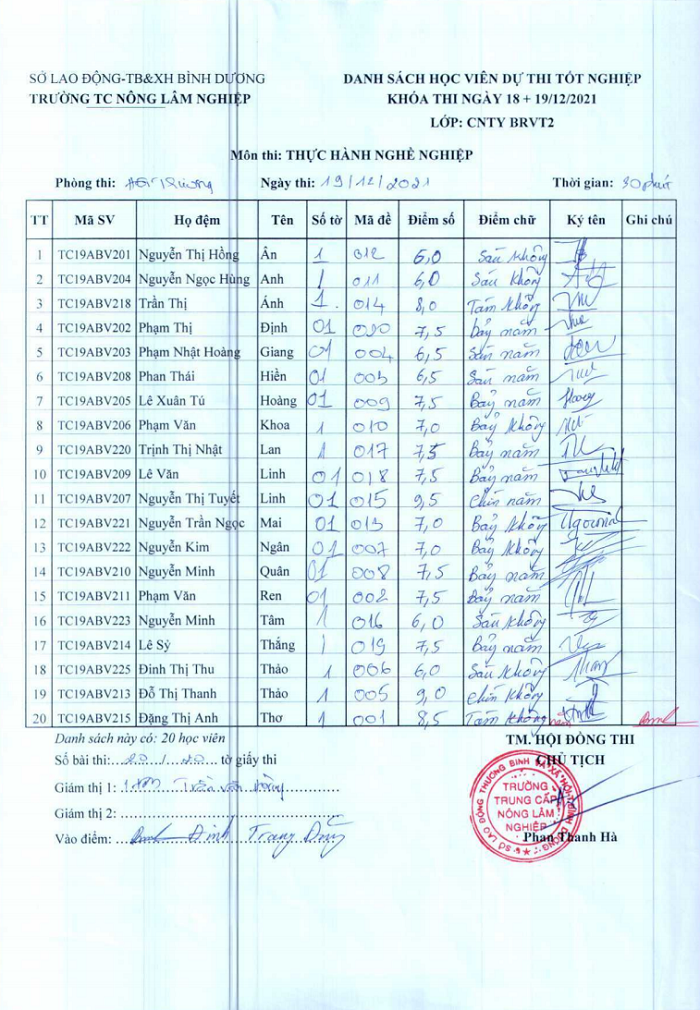 SỞ LAO ĐỘNG-TB&XH BÌNH DƯƠNG
TRƯỜNG TC NÔNG LÂM NGHIỆP
DANH SÁCH HỌC VIÊN DỰ THI TỐT NGHIỆP
KHÓA THI NGÀY 18 + 19/12/2021
LỚP: CNTY BRVT2
Môn thi: THỰC HÀNH NGHỀ NGHIỆP
Phòng thi: Ngày thi: 19/12/2021 Thời gian: 30 phút
TT Mã SV Họ đệm Tên Số tờ Mã đề Điểm số Điểm chữ Ký tên Ghi chú
1 TC19ABV201 Nguyễn Thị Hồng Ân 1 012 6,0 Sáu không
2 TC19ABV204 Nguyễn Ngọc Hùng Anh 1 011 6,0 Sáu không
3 TC19ABV218 Trần Thị Ánh 1 014 8,0 Tám không
4 TC19ABV202 Phạm Thị Định 01 7,5 Bảy năm
5 TC19ABV203 Phạm Nhật Hoàng Giang 01 004 6,5 Sáu năm
6 TC19ABV208 Phan Thái Hiền 01 003 6,5 Sáu năm
7 TC19ABV205 Lê Xuân Tú Hoàng 01 009 7,5 Bảy năm
8 TC19ABV206 Phạm Văn Khoa 1 010 7,0 Bảy không
9 TC19ABV220 Trịnh Thị Nhật Lan 1 017 7,5 Bảy năm
10 TC19ABV209 Lê Văn Linh 01 018 7,5 Bảy năm
11 TC19ABV207 Nguyễn Thị Tuyết Linh 01 015 9,5 Chín năm
12 TC19ABV221 Nguyễn Trần Ngọc Mai 01 013 7,0 Bảy không
13 TC19ABV222 Nguyễn Kim Ngân 01 007 7,0 Bảy không
14 TC19ABV210 Nguyễn Minh Quân 01 008 7,5 Bảy năm
15 TC19ABV211 Phạm Văn Ren 01 002 7,5 Bảy năm
16 TC19ABV223 Nguyễn Minh Tâm 1 016 6,0 Sáu không
17 TC19ABV214 Lê Sỷ Thắng 1 019 7,5 Bảy năm
18 TC19ABV225 Đinh Thị Thu Thảo 1 006 6,0 Sáu không
19 TC19ABV213 Đỗ Thị Thanh Thảo 1 005 9,0 Chín không
20 TC19ABV215 Đặng Thị Anh Thơ 1 001 8,5 Tám không năm
Danh sách này có: 20 học viên
Số bài thi: 20 / 20 tờ giấy thi
Giám thị 1:
Giám thị 2:
Vào điểm: Đinh Trang
TM. HỘI ĐỒNG THI
CHỦ TỊCH
TRƯỜNG
TRUNG CẤP
NÔNG LÂM
NGHIỆP
Phan Thanh Hà